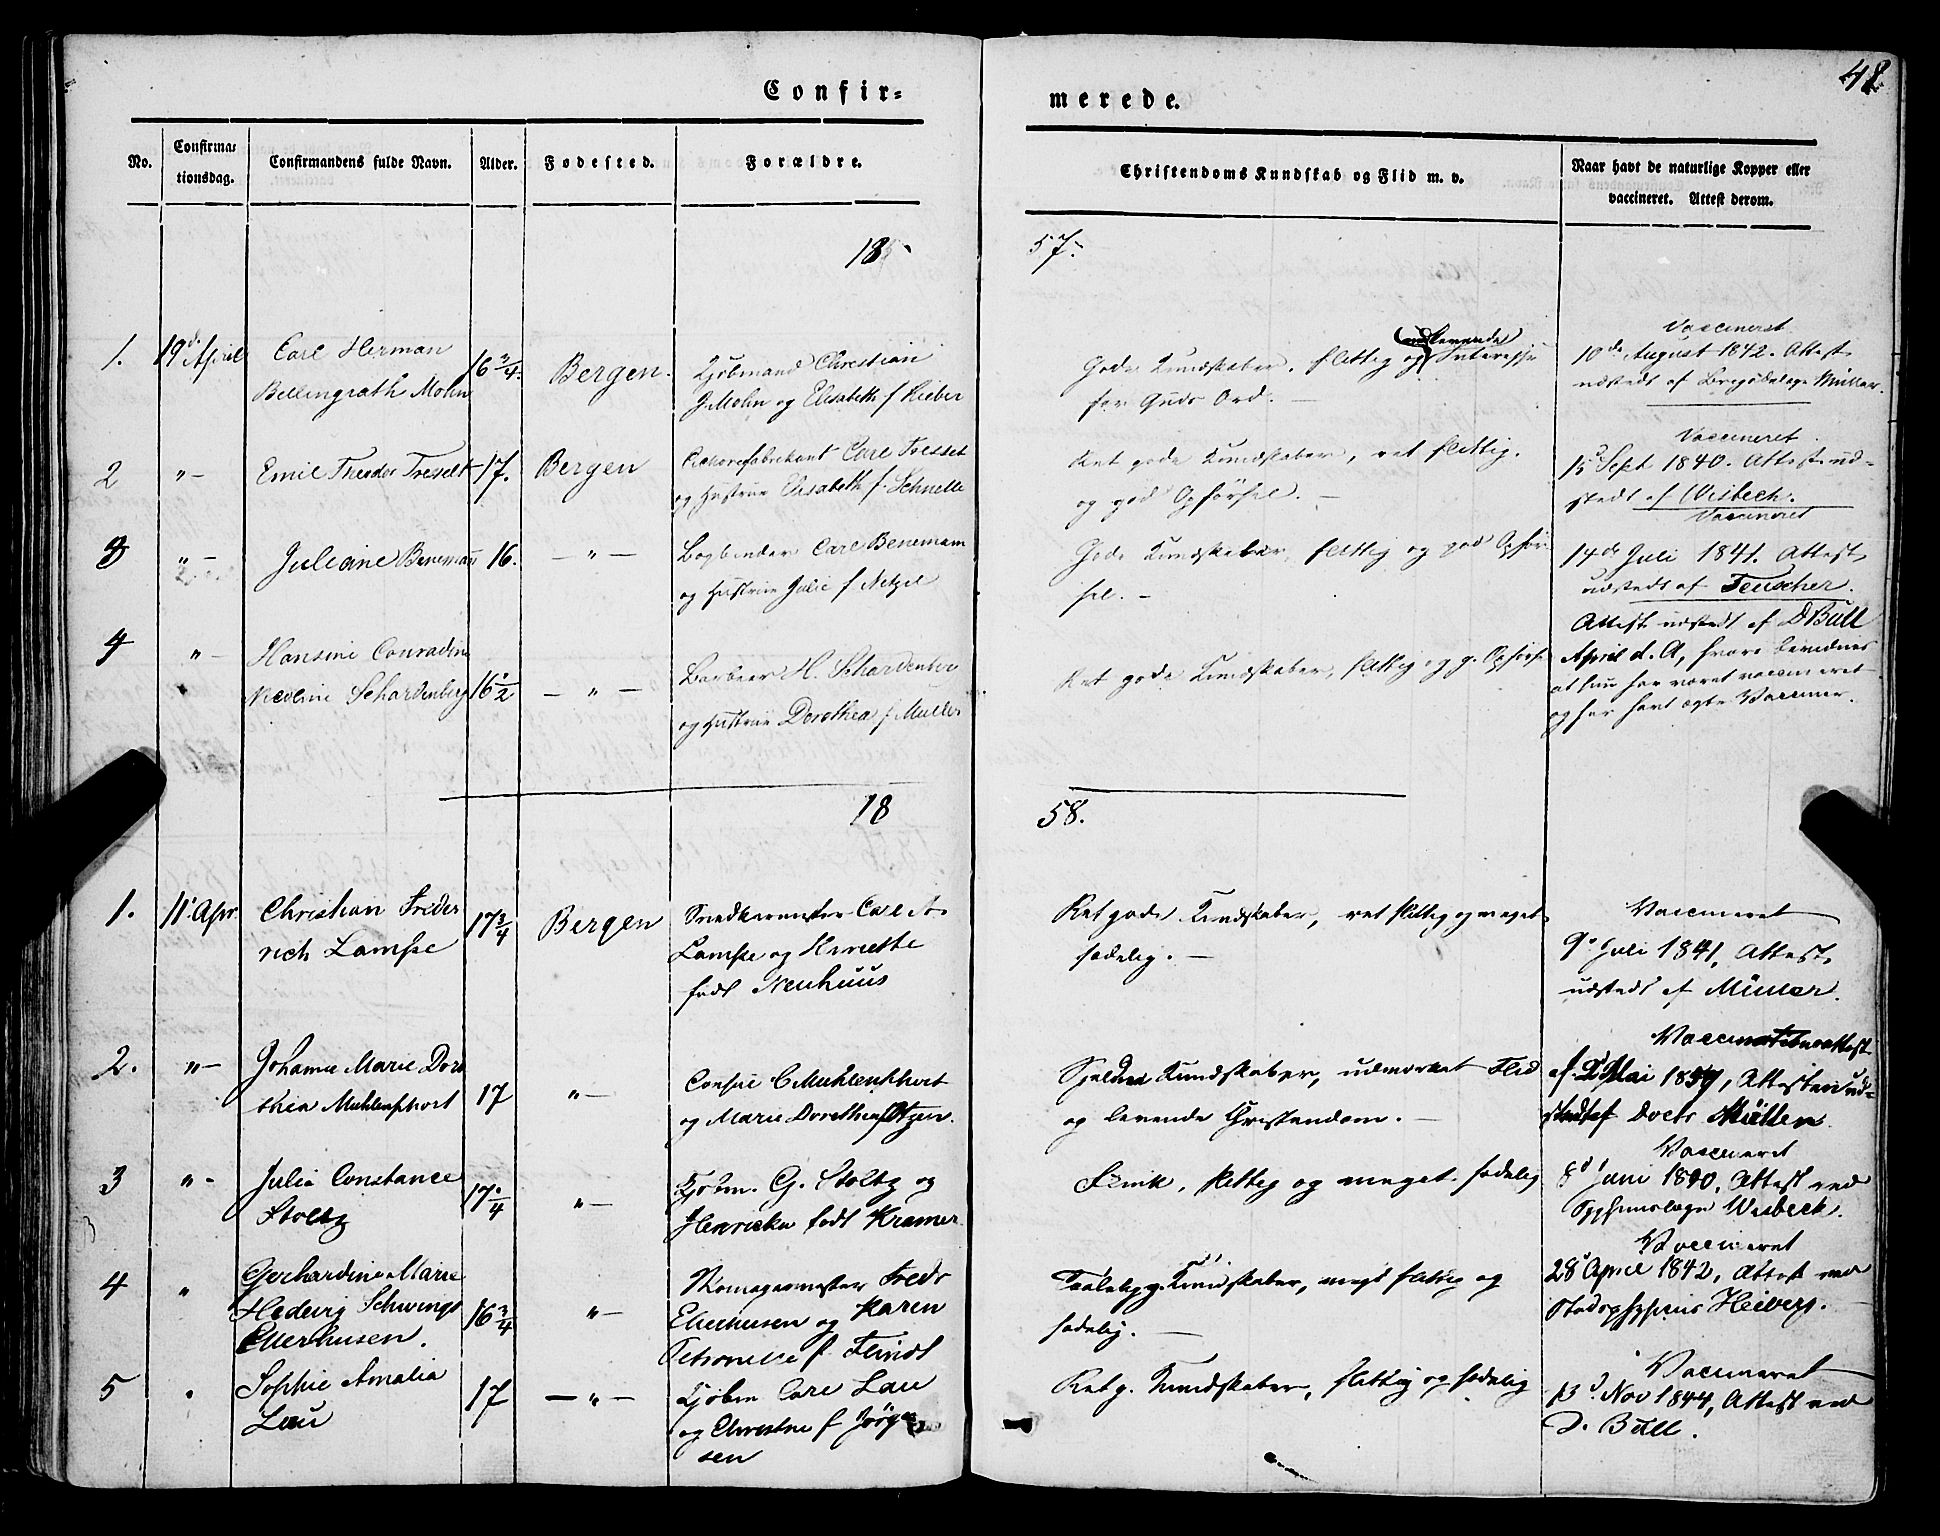 48
Confir=
merede.
No.
Confirma=
tionsdag.
Confirmandens fulde Navn.
Alder.
Fodested.
Forældre.
Christendoms Kundskab og Flid m. v.
Naar havt de naturlige Kopper eller
vaccineret. Attest derom.
18
57.
1. 19d April Carl Herman 16 3/4. Bergen. Kjøbmand Christian
Bellingrath Mohn
G Mohn og Elisabeth f Rieber
levende
Gode Kundskaber, flittig og Interesse
for Guds Ord. —
Vaccineret
10de August 1842. Attest
udstedt af Müller.
2 " — Emil Theodor Tresselt 17. Bergen Cichorifabrikant Carl Tresselt
og Hustrue Elisabeth f. Schnelle
Ret gode Kundskaber, ret flittig.
og god Opførsel. —
Vaccineret
15 Sept 1840. Attest ud=
stedt af Wisbech.
3 " — Juliane Benemann 16. — " — Bogbinder Carl Benemann
og Hustrue Julie f Netzel
Gode Kundskaber, flittig og god Opfør
sel. —
Vaccineret
14de Juli 1841. Attest
udstedt af Teuscher.
4 " — Hansine Conradine
Nicoline Schardenberg 16 1/2 — " — Barbeer H. Schardenberg
og Hustrue Dorothea f Müller
Ret gode Kundskaber, flittig og g. Opførsel
Attest udstedt af D Bull
April d. A, hvori bevidnes
at hun har været vaccineret
og har havt ægte Vacciner.
18
58.
1. 11' Apr. Christian Frider 17 3/4 Bergen Snedkermester Carl A.
rich Lampe
Lampe og Henriette
født Neuhuus
Ret gode Kundskaber, ret flittig og meget
sædelig. —
Vaccineret
9' Juli 1841, Attest
udstedt af Müller.
2. " — Johanne Marie Doro
thea Muhlenphort 17 " — Consul C Muhlenphort
og Marie Dorothea f Otzen.
Sjeldne Kundskaber, udmærket Flid
og levende Christendom. —
Vaccinationsattest
Mai
stedt af Docts Møller
3 " — Julie Constance
Stoltz 17 1/4 " — Kjøbm. G. Stoltz og
Henricka født Kramer
Flink, flittig og meget sædelig
Vaccineret
8d Juni 1840, Attest ved
Wisbeck.
4 " Gerhardine Marie
Hedvig Schwings
Ellerhusen. 16 3/4 " —
Fredr
Ellerhusen og Karen
Petronelle f. Feindt
Kundskaber, meget flittig og
sædelig. —
Vaccineret
28' April 1842, Attest ved
Stadsphysicus Heiberg.
5 " Sophie Amalia
Lau 17 — " — Kjøbm Carl Lau
og Christine f Jørgen
sen
Ret g. Kundskaber, flittig og sædelig
Vaccineret
13d Nov 1844, Attest ved
D. Bull.